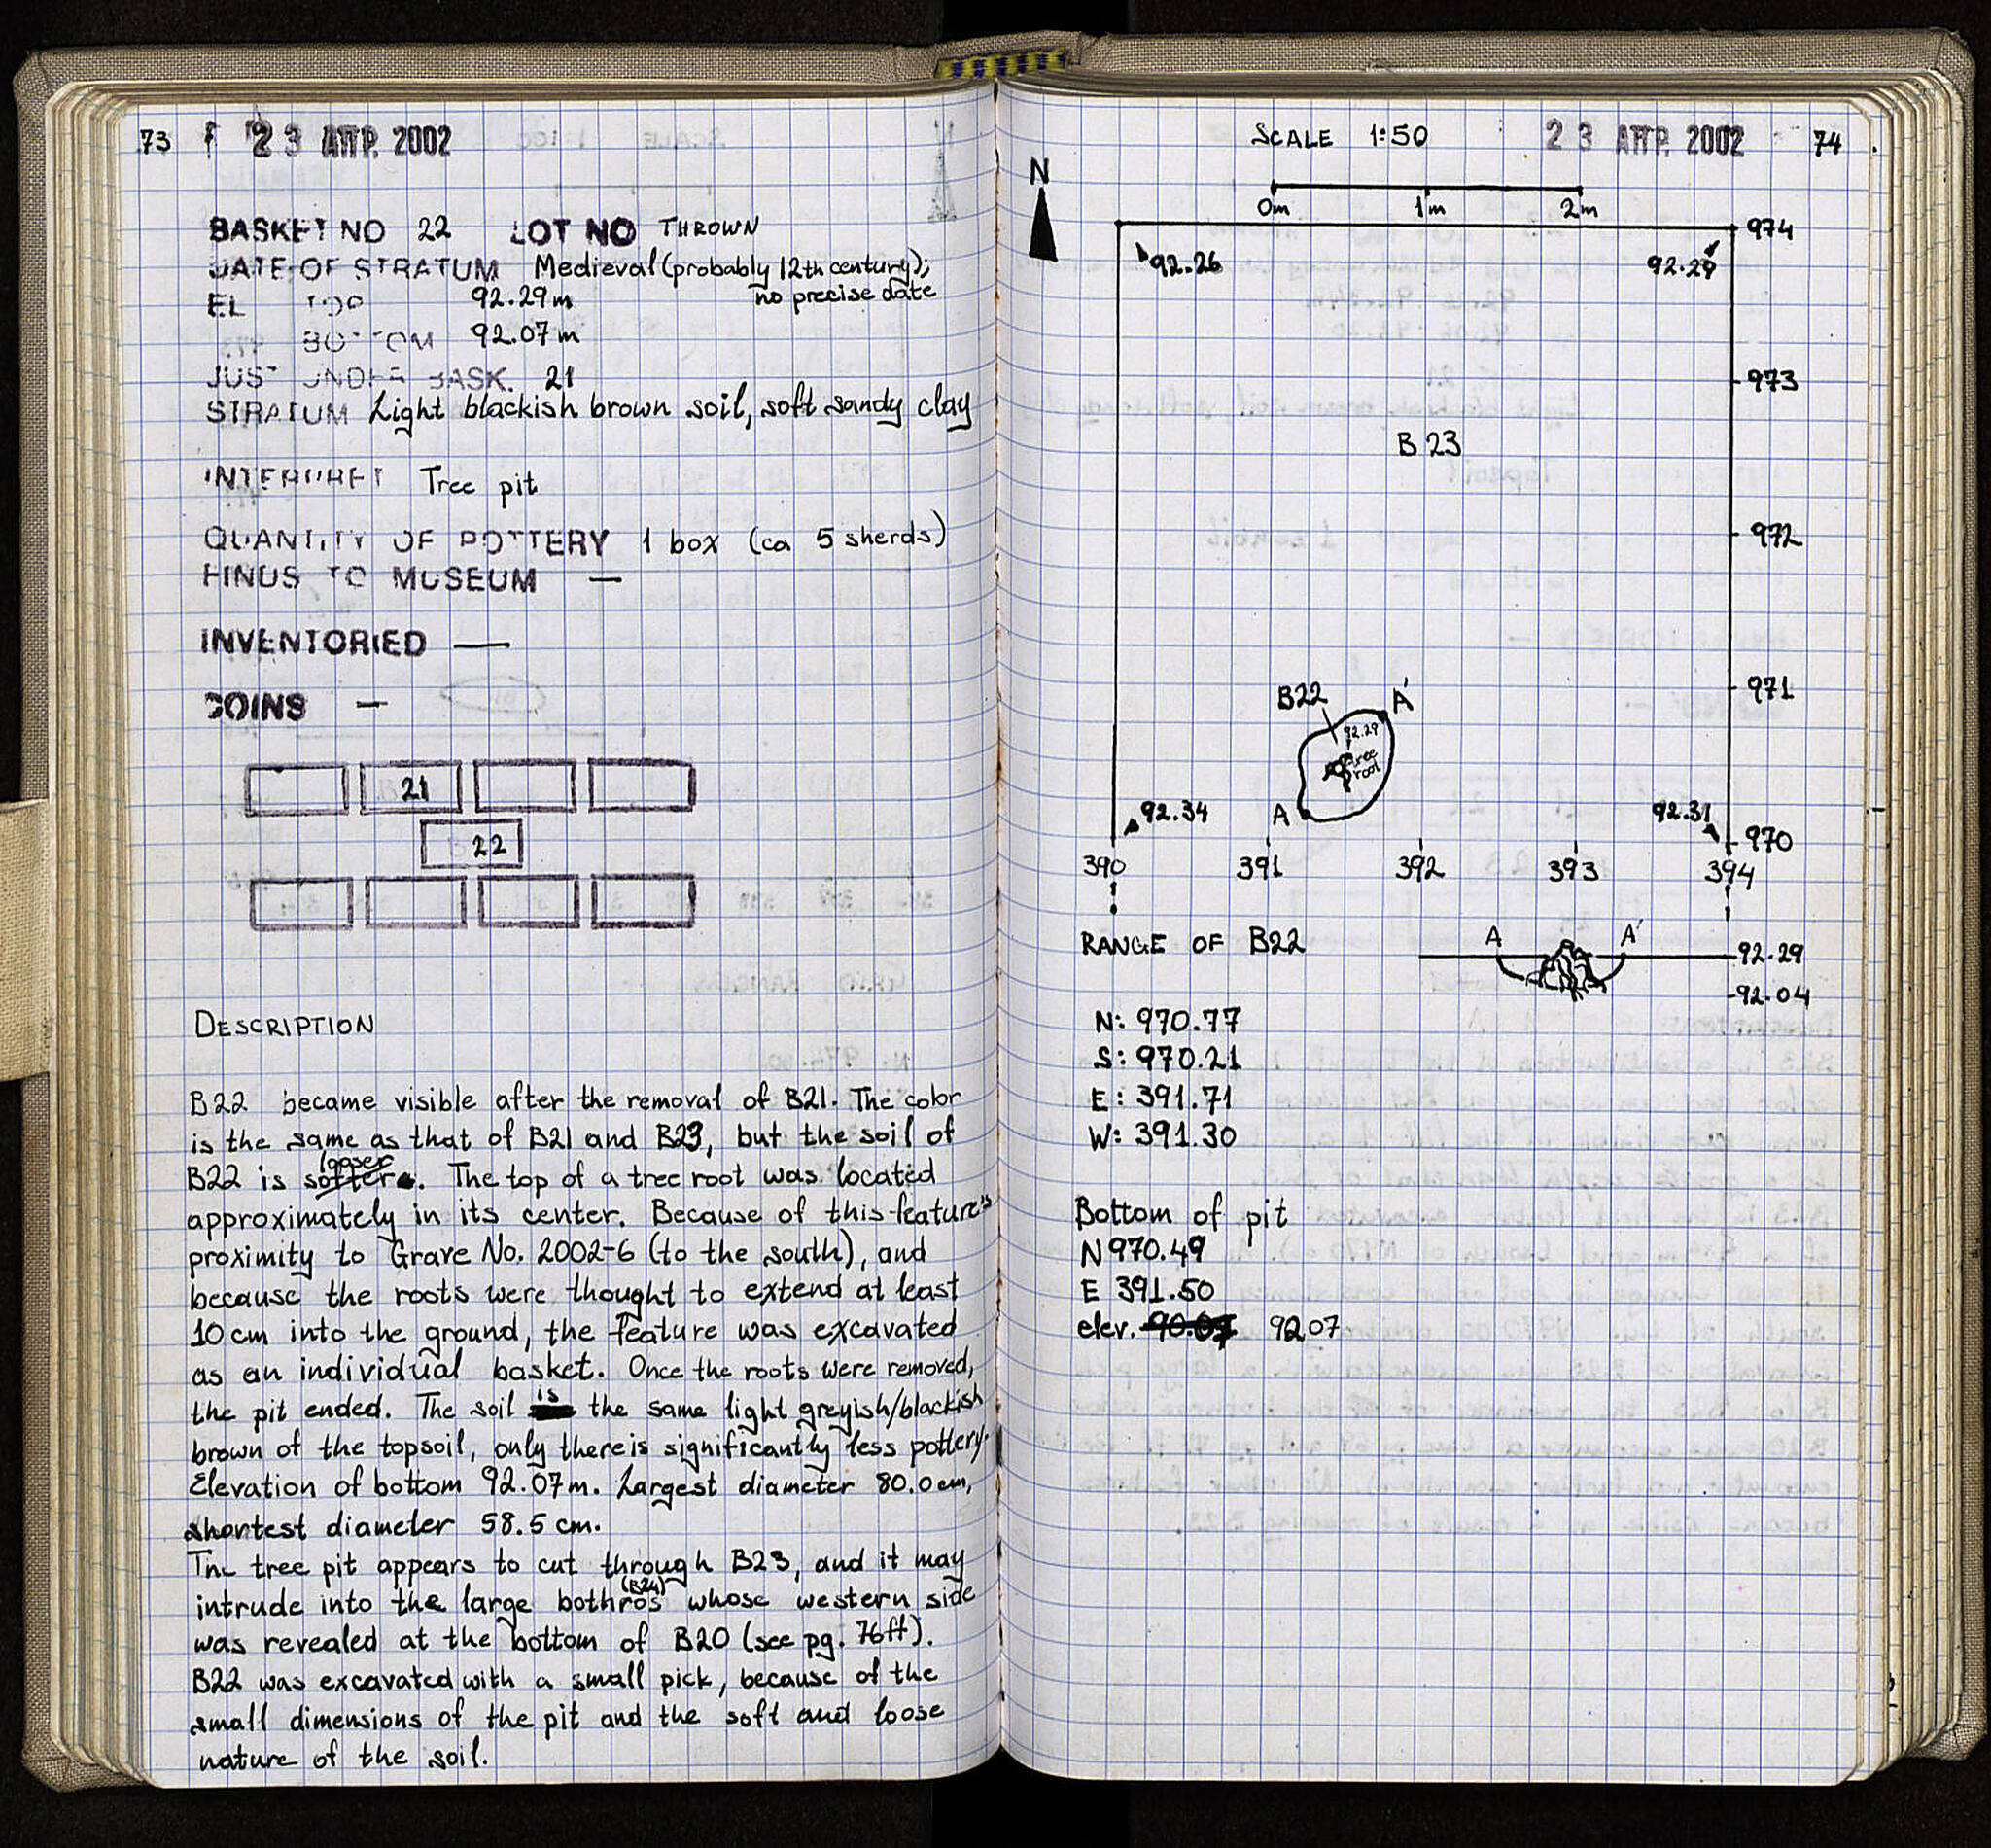 73 23 ΑΠΡ. 2002
BASKET NO 22 LOT NO THROWN
DATE OF STRATUM Medieval (probably 12th century);
no precise date
EL TOP 92.29m
BOTTOM 92.07m
JUST UNDER BASK. 21
STRATUM Light blackish brown soil, soft sandy clay
INTERPRET Tree pit
QUANTITY OF POTTERY 1 box (ca 5 sherds)
FINDS TO MUSEUM —
INVENTORIED —
COINS —
21
22
DESCRIPTION
B22 became visible after the removal of B21. The color
is the same as that of B21 and B23, but the soil of
looser
B22 is softer. The top of a tree root was located
approximately in its center. Because of this feature's
proximity to Grave No. 2002-6 (to the south), and
because the roots were thought to extend at least
10cm into the ground, the feature was excavated
as an individual basket. Once the roots were removed,
the pit ended. The soil is the same light greyish/blackish
brown of the topsoil, only there is significantly less pottery.
Elevation of bottom 92.07m. Largest diameter 80.0cm,
shortest diameter 58.5 cm.
The tree pit appears to cut through B23, and it may
(B24)
intrude into the large bothros whose western side
was revealed at the bottom of B20 (see pg. 76ff).
B22 was excavated with a small pick, because of the
small dimensions of the pit and the soft and loose
nature of the soil.
SCALE 1:50 23 ΑΠΡ. 2002 74
N
0m 1m 2m
974
92.26 92.29
973
B23
972
971
B22 A'
92.29
tree
root
A
92.34 92.31
970
390 391 392 393 394
RANGE OF B22
A A'
92.29
92.04
N: 970.77
S: 970.21
E: 391.71
W: 391.30
Bottom of pit
N 970.49
E 391.50
elev. 90.07 92.07